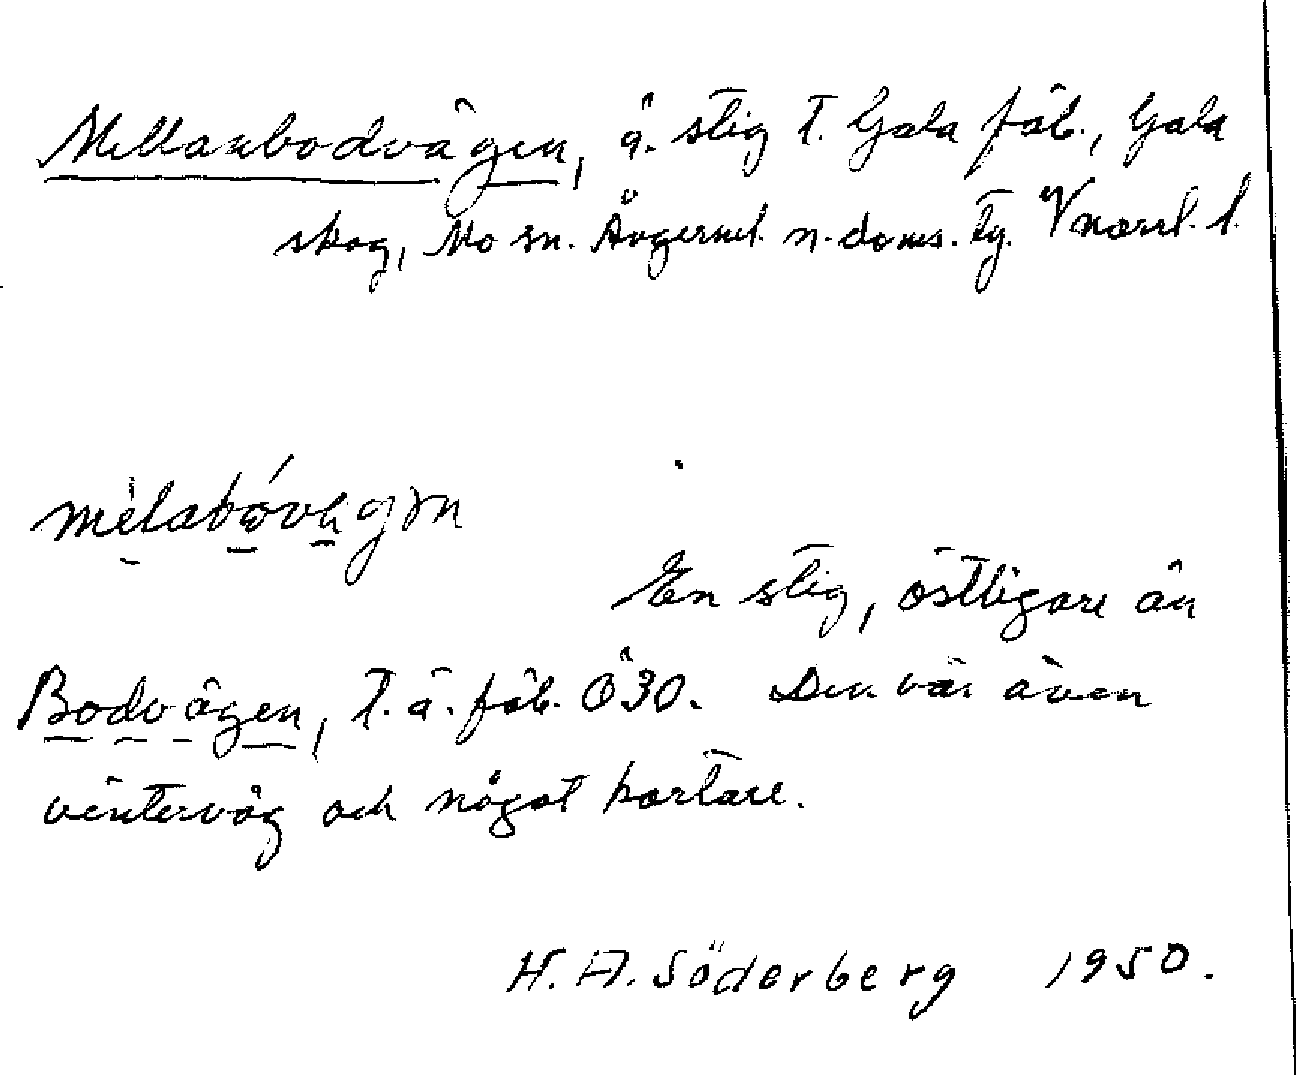 Mellanbodvägen, ä. stig t. Gala fäb., Gala
skog, Mo sn. Ångerml. n. doms. tg. Vnorrl. l.
En stig, östligare än
Bodvägen, t. ä. fäb. Ö30. Den var även
vinterväg och något kortare.
H. A. Söderberg 1950.